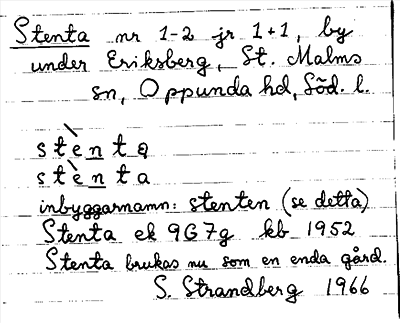 Stenta nr 1-2 jr 1+1, by
under Eriksberg, St. Malms
sn, Oppunda hd, Söd. l.
stèntą
stènta
inbyggarnamn: stenten (se detta)
Stenta ek 9G7g kb 1952
Stenta brukas nu som en enda gård.
S. Strandberg 1966